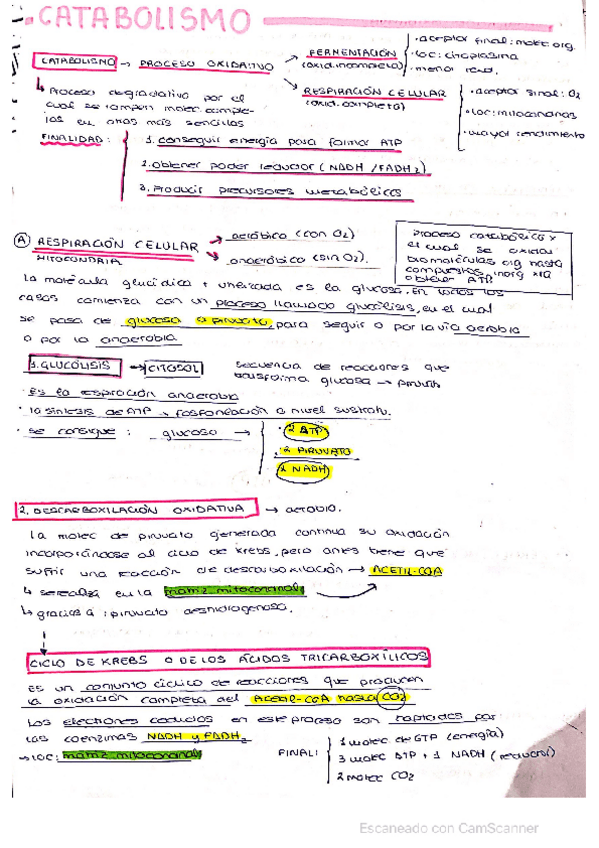 CATABOLISMO
CATABOLISMO → PROCESO OXIDATIVO
FERMENTACIÓN
(oxid. incompleta)
· aceptor final: molec org.
· loc: citoplasma
· menor rend.
RESPIRACIÓN CELULAR
(oxid. completa)
· aceptor final: O2
· loc: mitocondrias
· mayor rendimiento
Proceso degradativo por el
cual se rompen molec. comple-
jas en otras más sencillas
FINALIDAD:
1. conseguir energía para formar ATP
2. obtener poder reductor (NADH / FADH2)
3. Producir precursores metabólicos
A RESPIRACIÓN CELULAR
MITOCONDRIA
aeróbica (con O2)
anaeróbica (sin O2).
Proceso catabólico x
el cual se oxidan
biomoléculas org hasta
compuestos inorg xra
obtener ATP.
La molécula glucídica + utilizada es la glucosa. En todos los
casos comienza con un proceso llamado glucólisis, en el cual
se pasa de glucosa a piruvato, para seguir o por la vía aerobia
o por la anaerobia
1. GLUCÓLISIS → CITOSOL
secuencia de reacciones que
transforma glucosa → piruvato
· Es la respiración anaerobia
· la síntesis de ATP → fosforilación a nivel sustrato.
· se consigue: glucosa →
· 2 ATP
· 2 PIRUVATO
2 NADH
2. DESCARBOXILACIÓN OXIDATIVA → aerobio.
La molec de piruvato generada continua su oxidación
incorporándose al ciclo de Krebs, pero antes tiene que
sufrir una reacción de descarboxilación → ACETIL-COA
↳ se realiza en la matriz mitocondrial
↳ gracias a: piruvato deshidrogenasa.
CICLO DE KREBS O DE LOS ÁCIDOS TRICARBOXÍLICOS
Es un conjunto cíclico de reacciones que producen
la oxidación completa del ACETIL-CoA hasta CO2
Los electrones cedidos en este proceso son captados por
las coenzimas NADH y FADH2
→ LOC: matriz mitocondrial
FINAL:
1 molec de GTP (energía)
3 molec + 1 NADH (reductor)
2 molec CO2
Escaneado con CamScanner